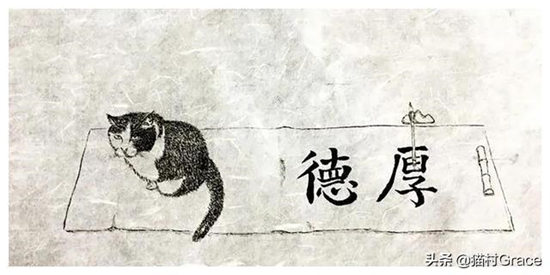 厚德
头条 @猫村Grace